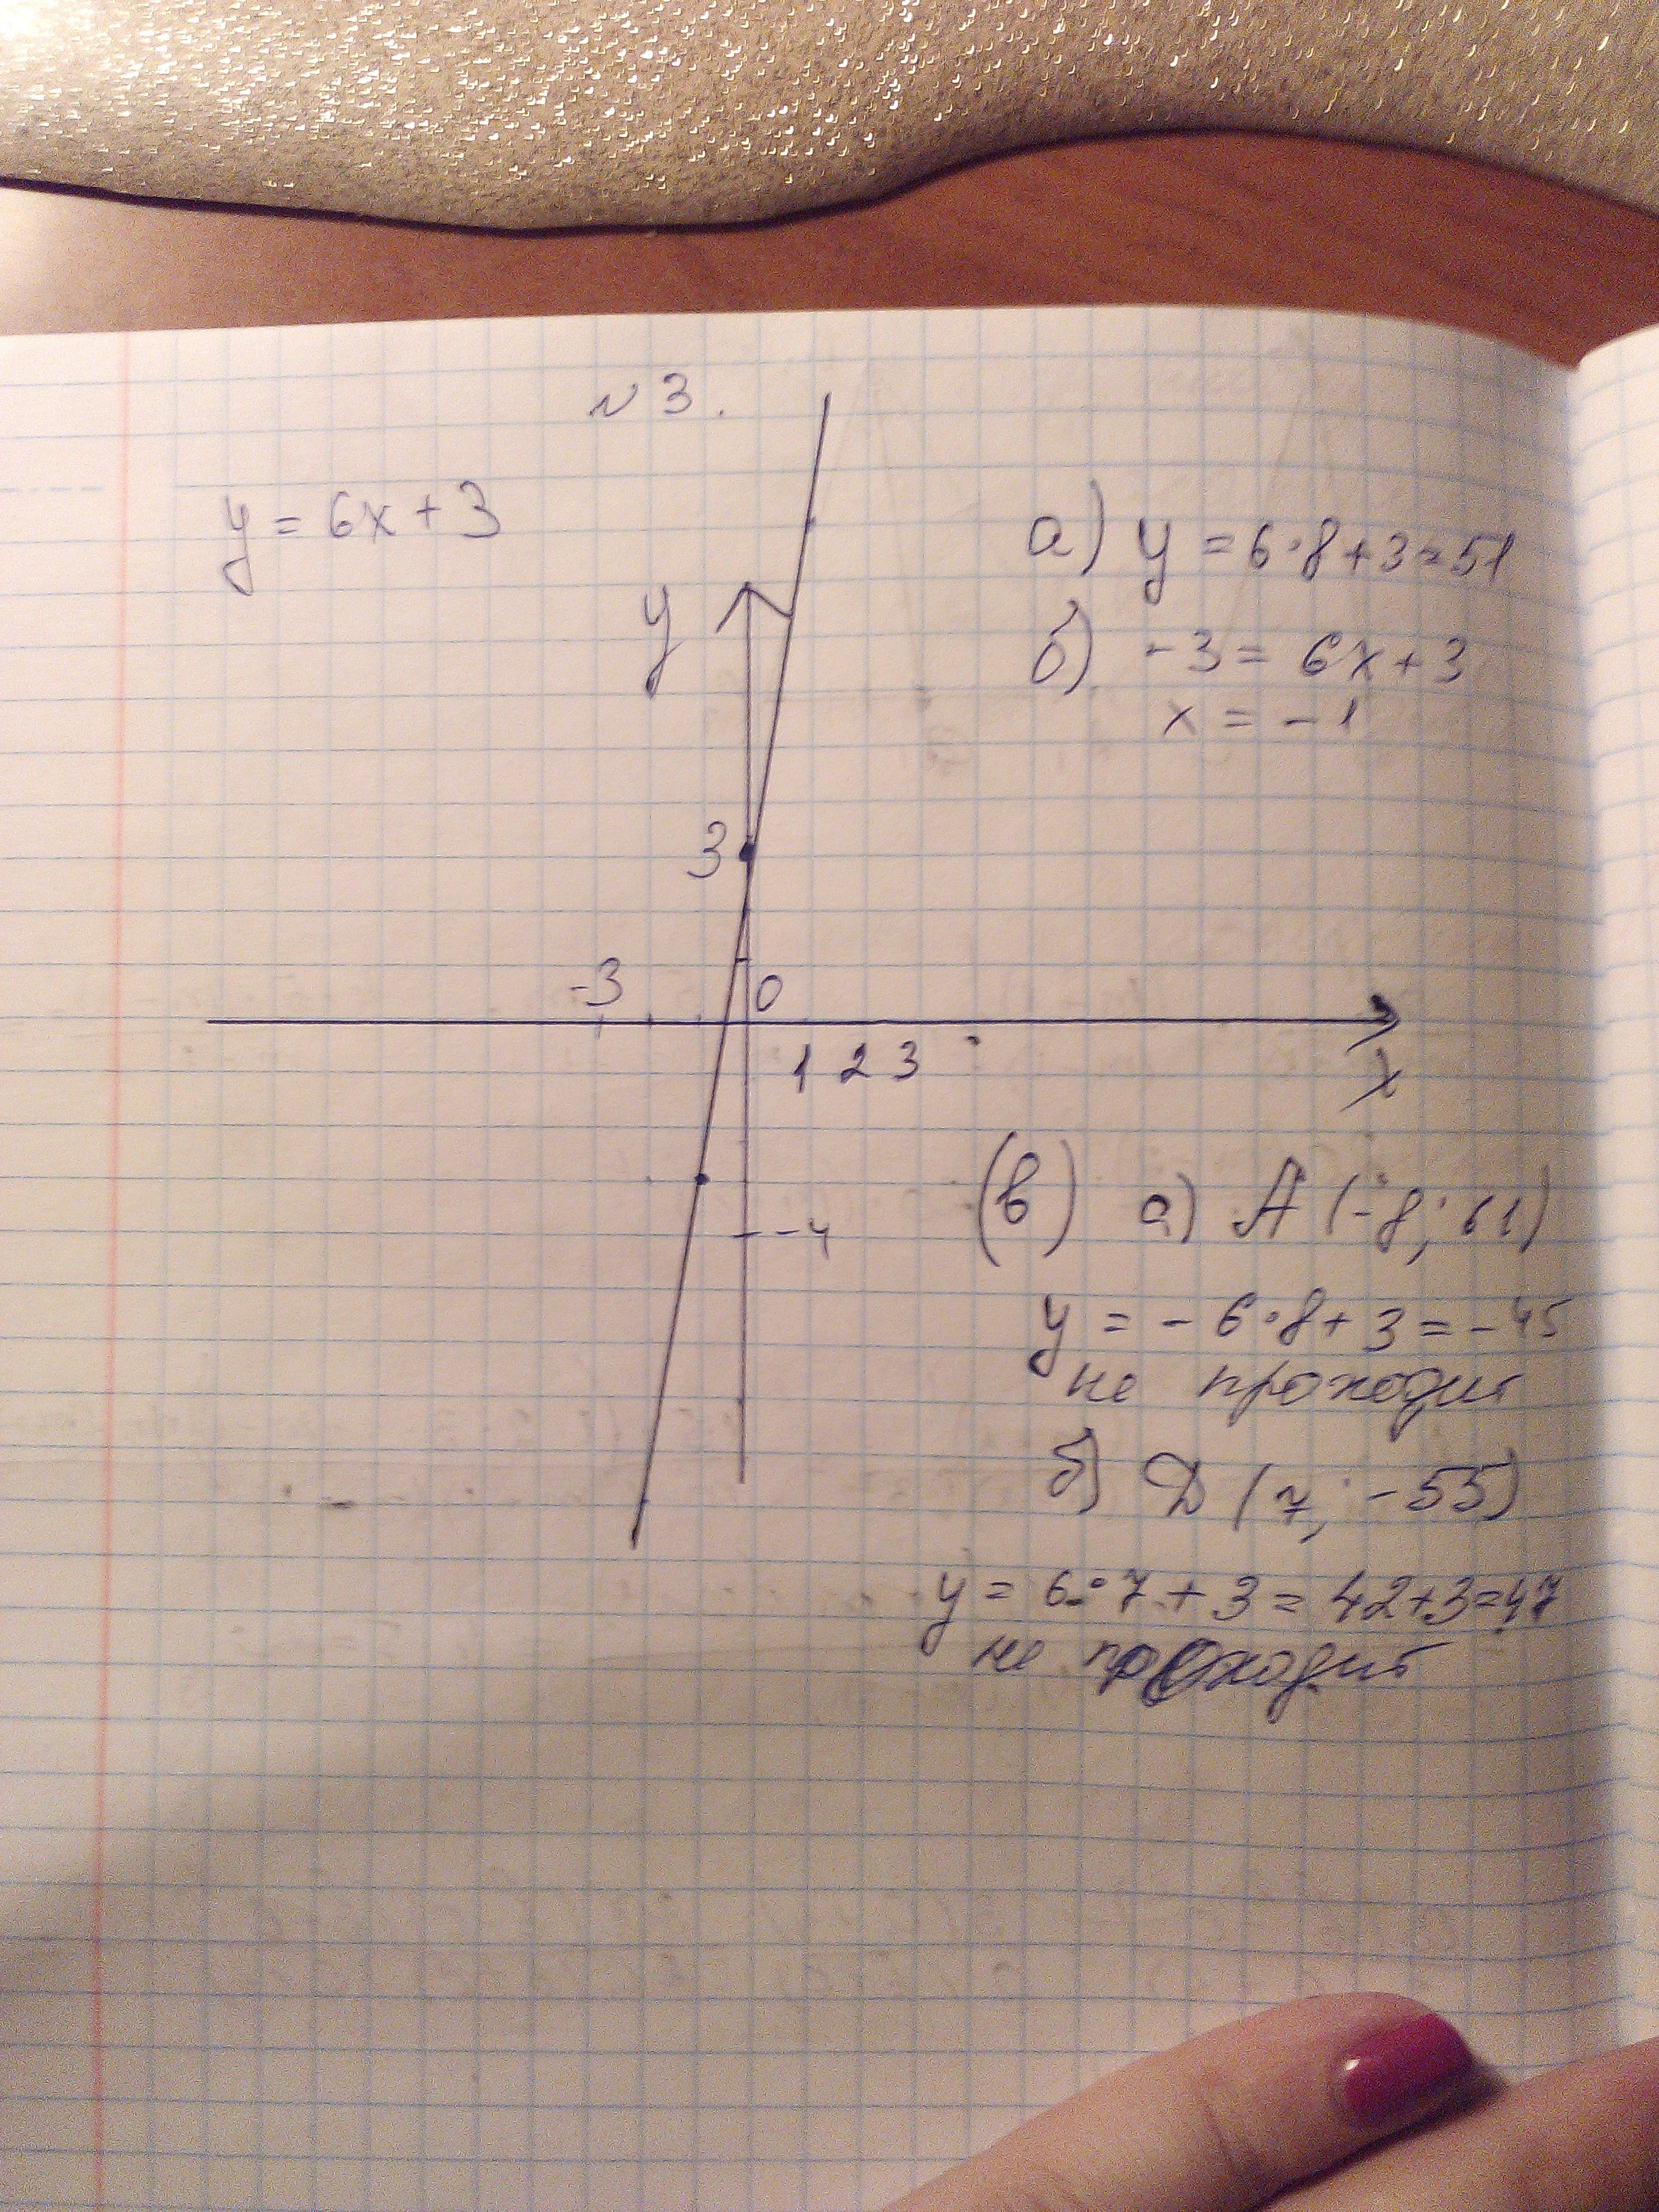 N 3.
y = 6x + 3
а) y = 6·8+3=51
б) -3 = 6x+3
x = -1
y
3
-3
0
1 2 3
x
-4
(в) а) A (-8; 61)
y = - 6·8+3 = -45
не проходит
б) D (7; -55)
y = 6·7+3 = 42+3=47
не проходит